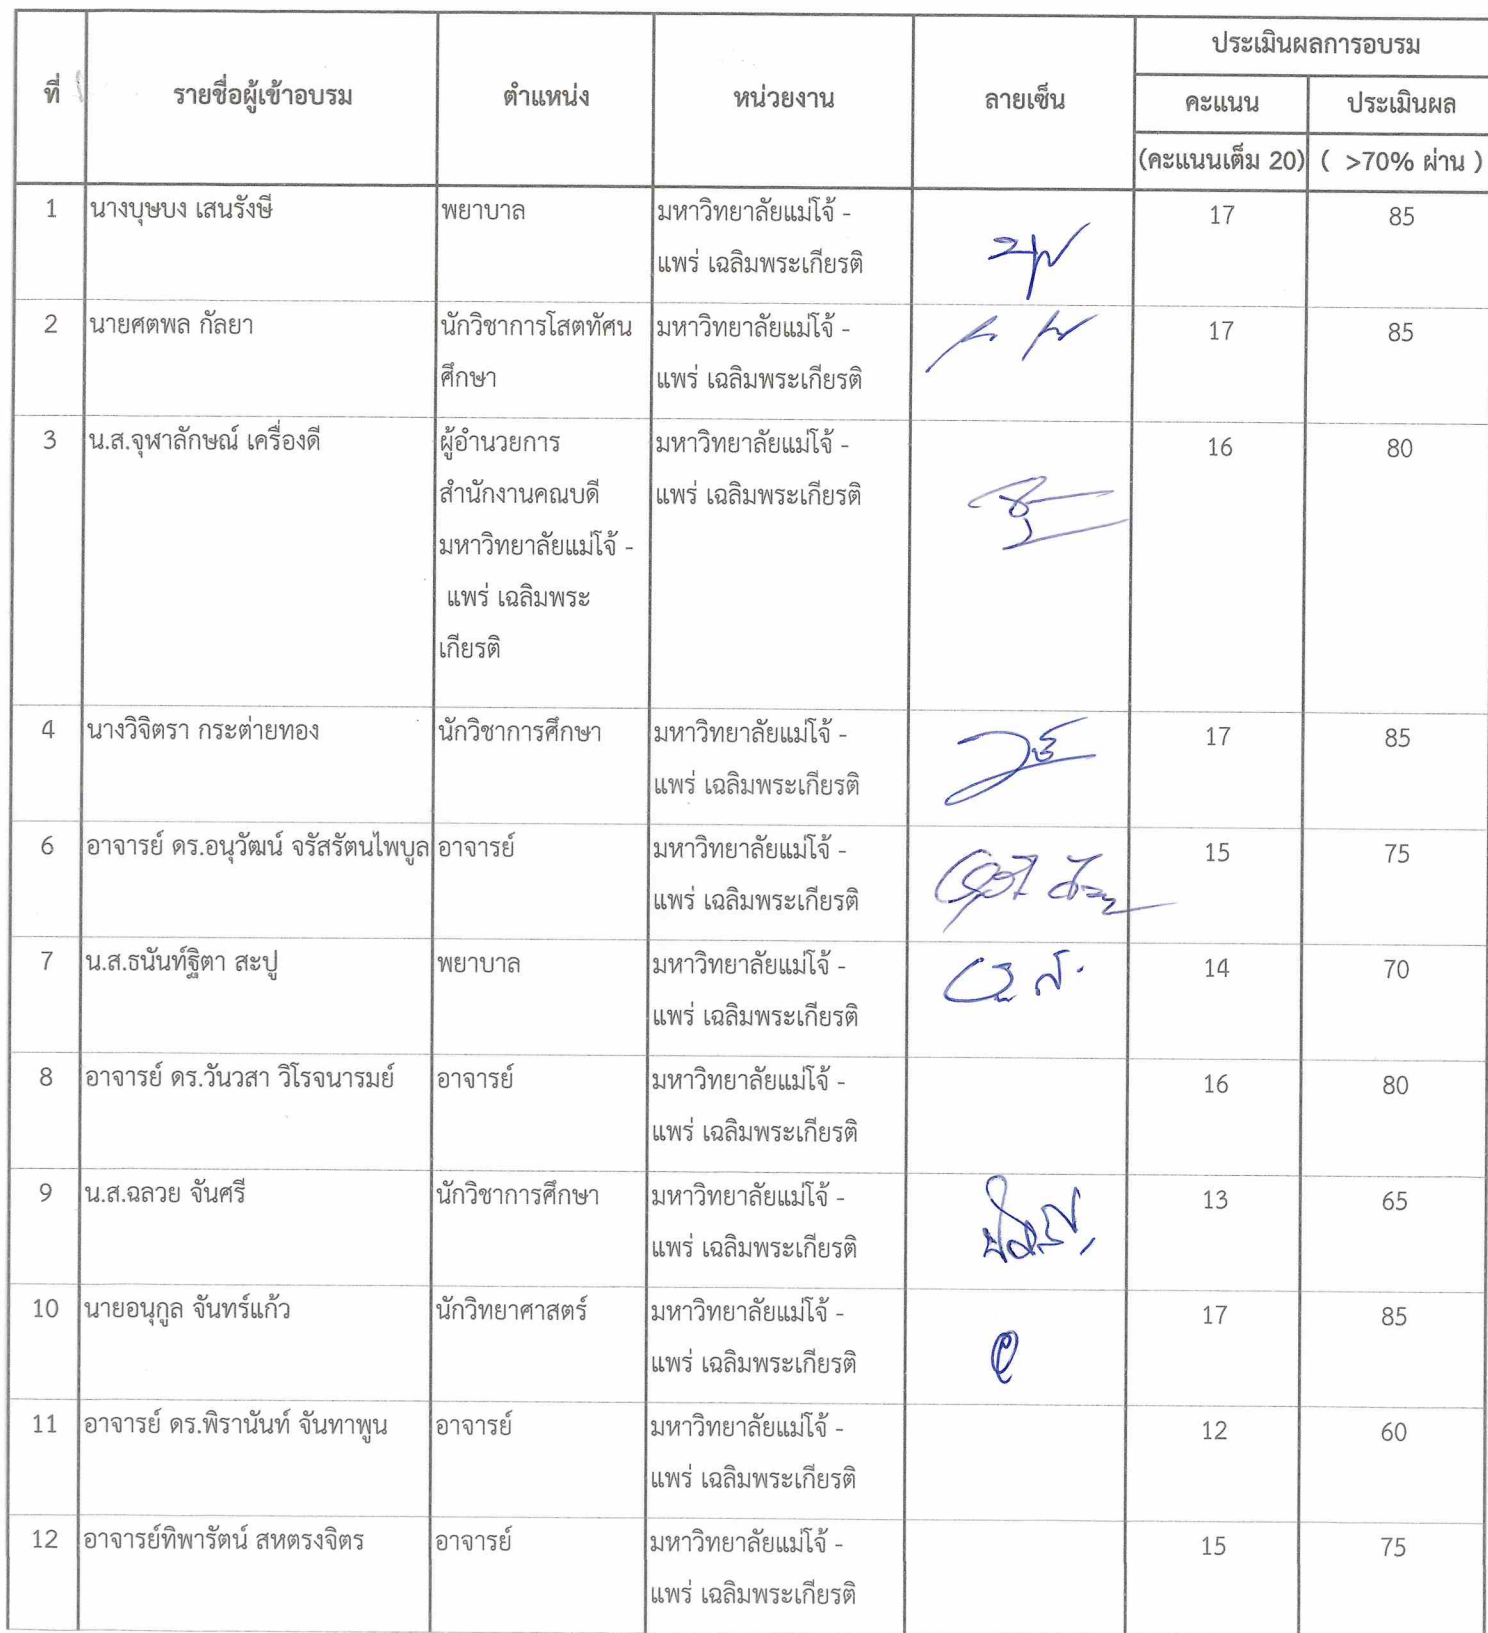 ที่ รายชื่อผู้เข้าอบรม ตำแหน่ง หน่วยงาน ลายเซ็น ประเมินผลการอบรม
คะแนน ประเมินผล
(คะแนนเต็ม 20) ( >70% ผ่าน )
1 นางบุษบง เสนรังษี พยาบาล มหาวิทยาลัยแม่โจ้ - 17 85
แพร่ เฉลิมพระเกียรติ
2 นายศตพล กัลยา นักวิชาการโสตทัศน มหาวิทยาลัยแม่โจ้ - 17 85
ศึกษา แพร่ เฉลิมพระเกียรติ
3 น.ส.จุฬาลักษณ์ เครื่องดี ผู้อำนวยการ มหาวิทยาลัยแม่โจ้ - 16 80
สำนักงานคณบดี แพร่ เฉลิมพระเกียรติ
มหาวิทยาลัยแม่โจ้ -
แพร่ เฉลิมพระ
เกียรติ
4 นางวิจิตรา กระต่ายทอง นักวิชาการศึกษา มหาวิทยาลัยแม่โจ้ - 17 85
แพร่ เฉลิมพระเกียรติ
6 อาจารย์ ดร.อนุวัฒน์ จรัสรัตนไพบูล อาจารย์ มหาวิทยาลัยแม่โจ้ - 15 75
แพร่ เฉลิมพระเกียรติ
7 น.ส.ธนันท์ฐิตา สะปู พยาบาล มหาวิทยาลัยแม่โจ้ - 14 70
แพร่ เฉลิมพระเกียรติ
8 อาจารย์ ดร.วันวสา วิโรจนารมย์ อาจารย์ มหาวิทยาลัยแม่โจ้ - 16 80
แพร่ เฉลิมพระเกียรติ
9 น.ส.ฉลวย จันศรี นักวิชาการศึกษา มหาวิทยาลัยแม่โจ้ - 13 65
แพร่ เฉลิมพระเกียรติ
10 นายอนุกูล จันทร์แก้ว นักวิทยาศาสตร์ มหาวิทยาลัยแม่โจ้ - 17 85
แพร่ เฉลิมพระเกียรติ
11 อาจารย์ ดร.พิรานันท์ จันทาพูน อาจารย์ มหาวิทยาลัยแม่โจ้ - 12 60
แพร่ เฉลิมพระเกียรติ
12 อาจารย์ทิพารัตน์ สหตรงจิตร อาจารย์ มหาวิทยาลัยแม่โจ้ - 15 75
แพร่ เฉลิมพระเกียรติ